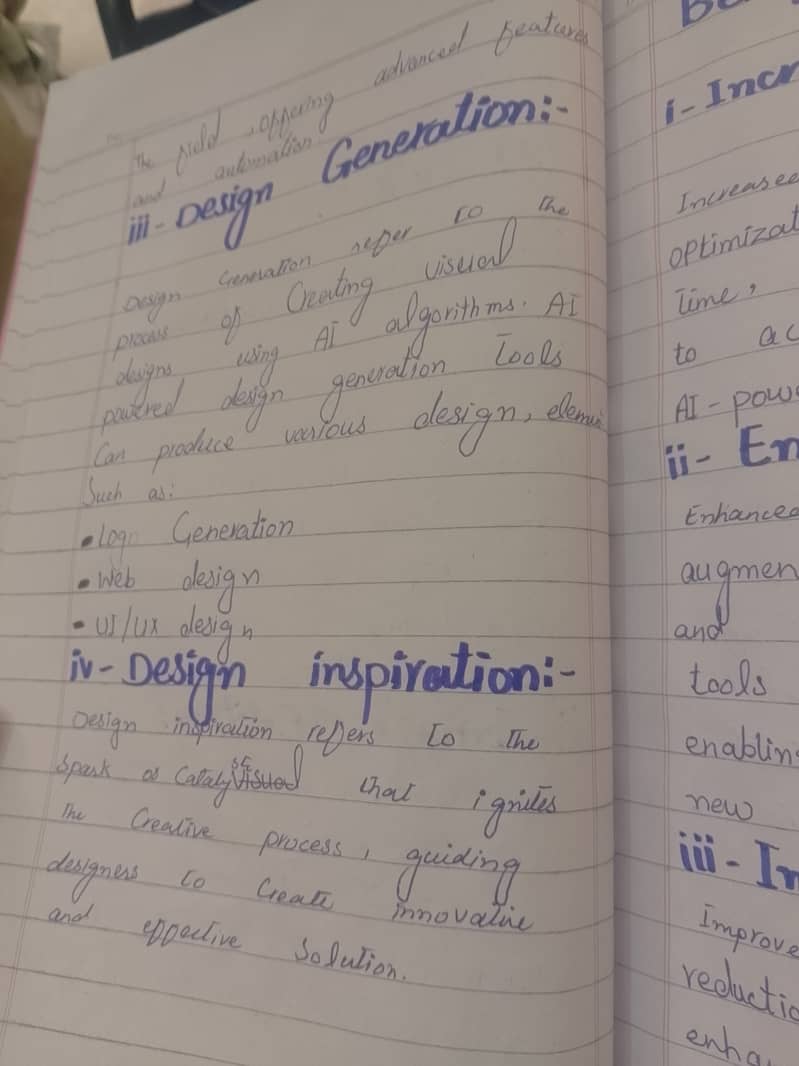 The field, offering advanced features
and automation
iii- Design Generation:-
Design Generation refer to the
process of Creating visual
designs using AI algorithms. AI
powered design generation Tools
Can produce various design, eleme
Such as:
• Logo Generation
• Web design
• UI/UX design
iv- Design inspiration:-
Design inspiration refers to the
Spark or Catalyst that ignites
The Creative process, guiding
designess to Create innovative
and effective Solution.
i- Incr
Increased
optimizat
Time,
to ac
AI-pow
ii- En
Enhanced
augmen
and
tools
enablin
new
iii- Im
Improve
reductio
enha